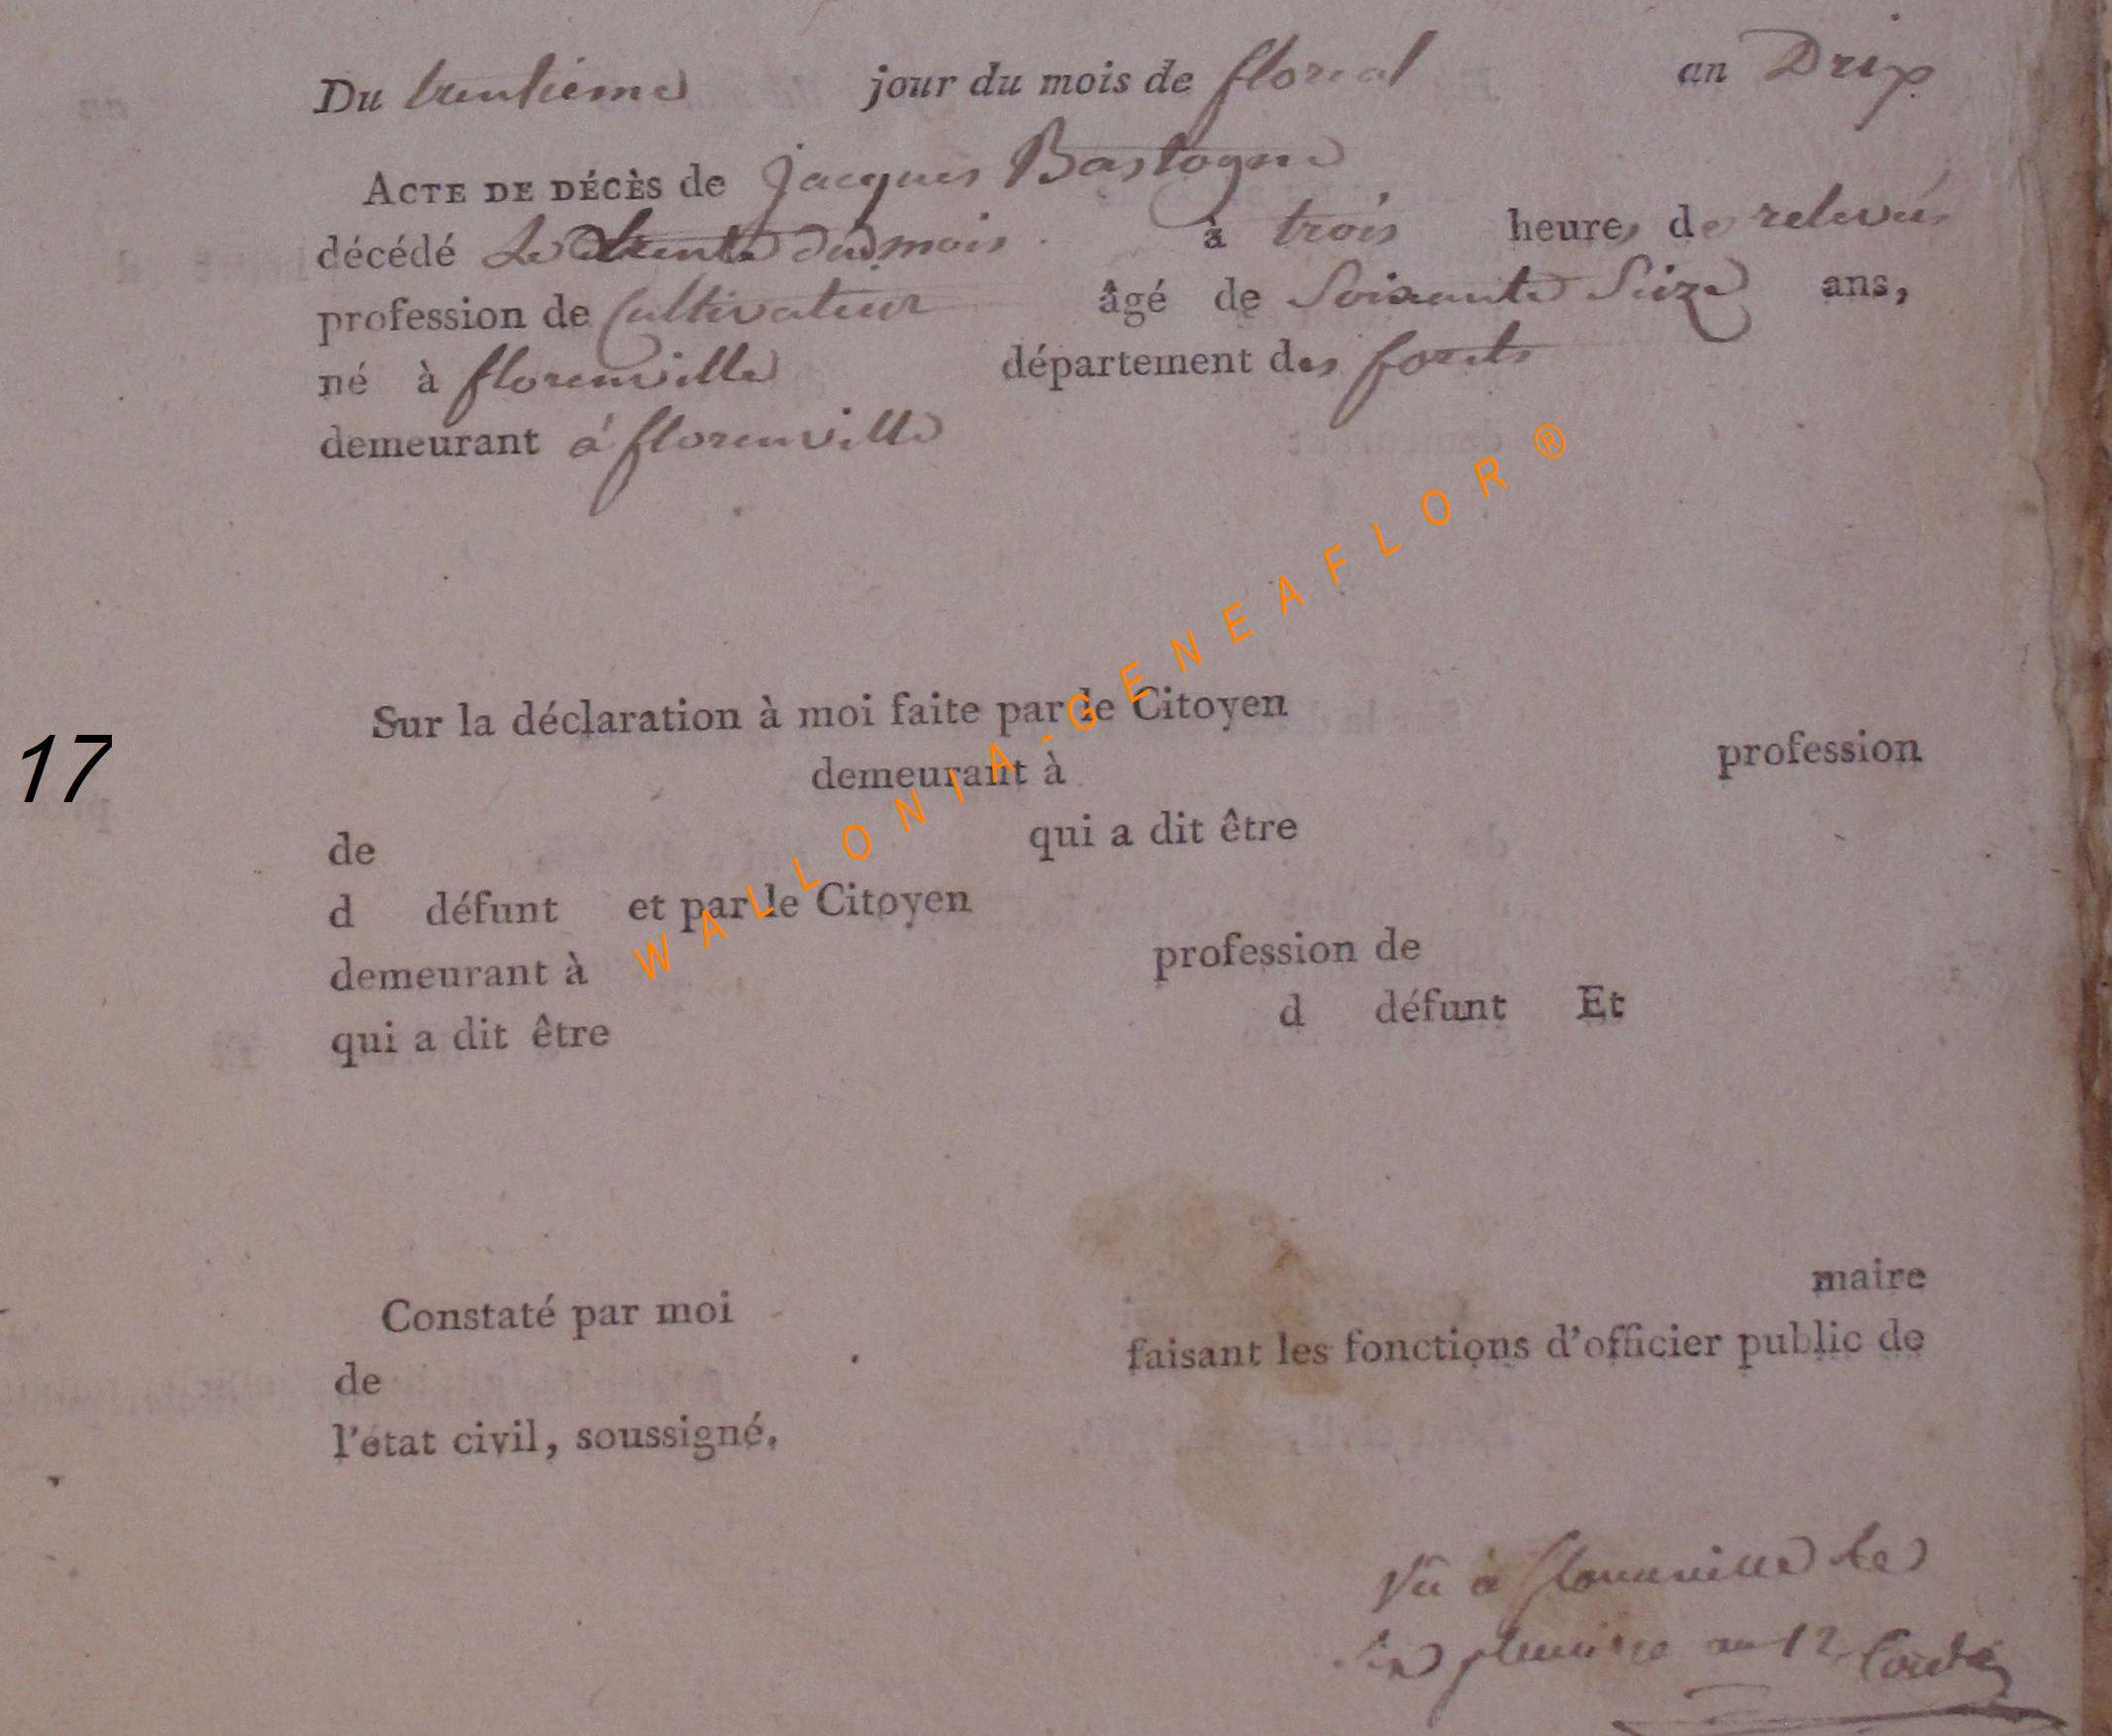 Du trentieme jour du mois de floreal an Dix
ACTE DE DÉCÈS de Jacques Bastogne
décédé Le trente dud mois à trois heures de relevée
profession de Cultivateur âgé de Soixante Seize ans,
né à florenville département des forets
demeurant à florenville
Sur la déclaration à moi faite par le Citoyen
demeurant à profession
de qui a dit être
d défunt et par le Citoyen
demeurant à profession de
qui a dit être d défunt Et
17
WALLONIA-GENEAFLOR®
Constaté par moi maire
de faisant les fonctions d'officier public de
l'état civil, soussigné.
Vu à florenville le
six pluviose an 12